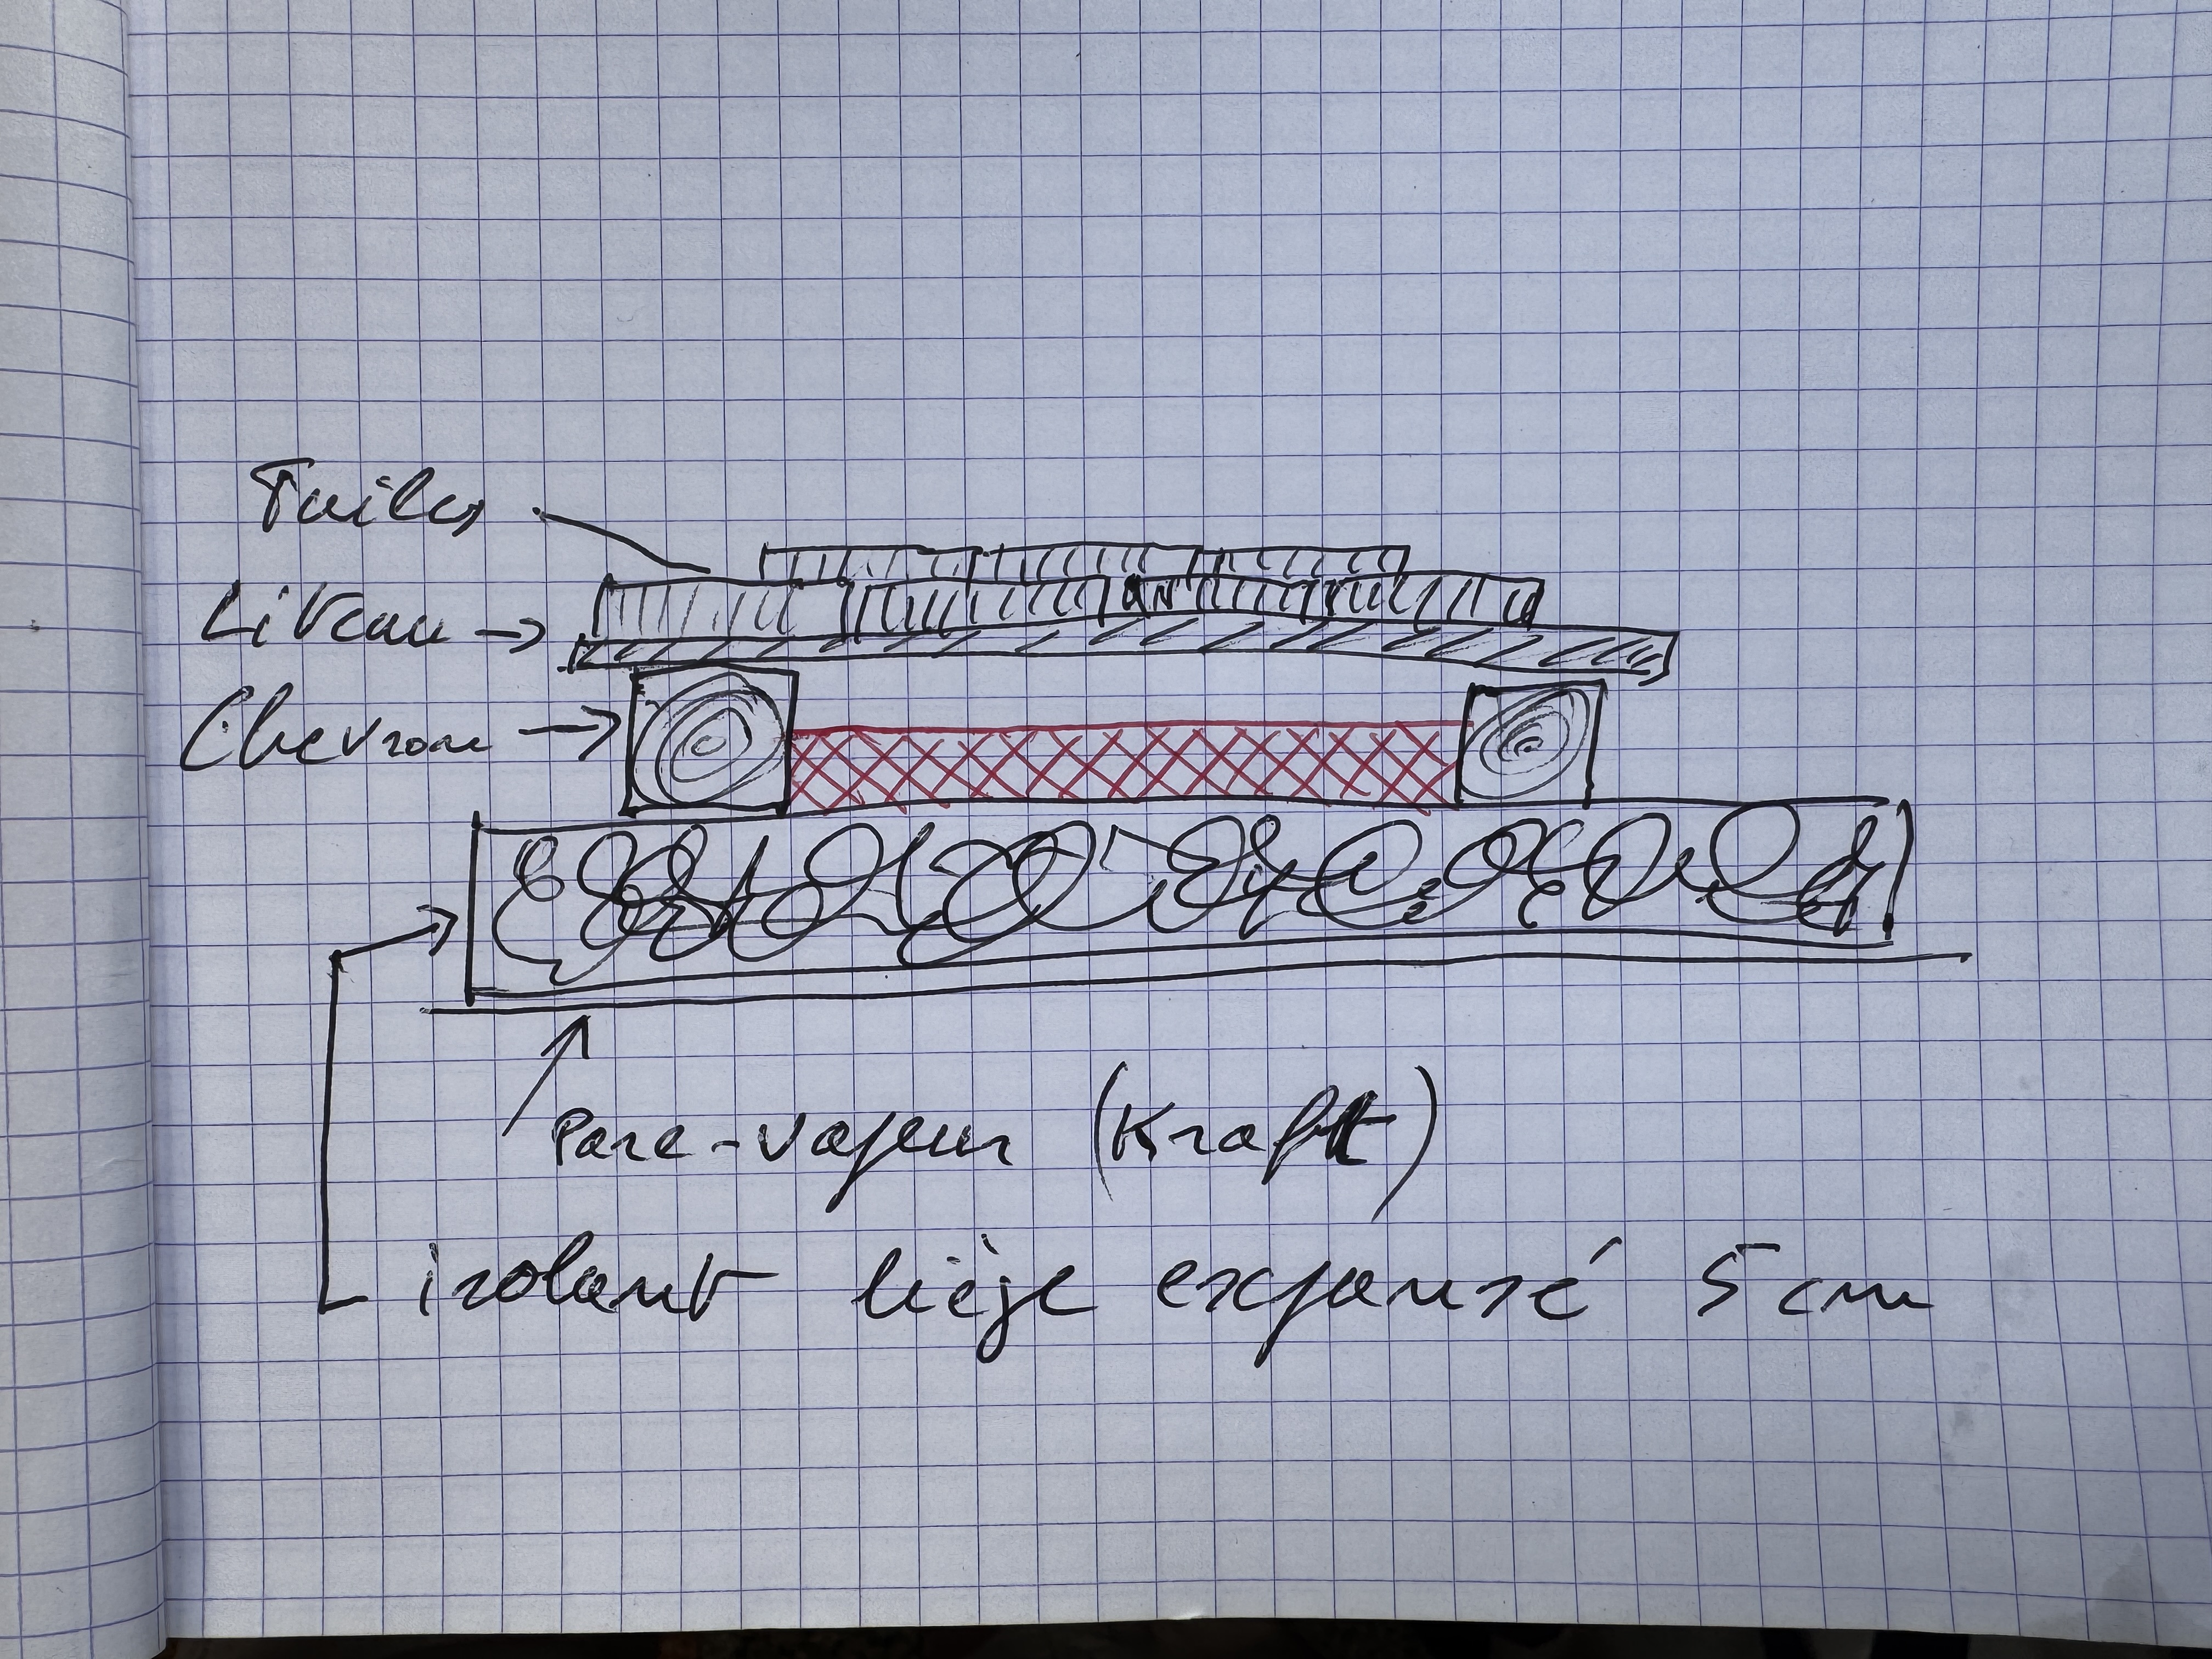 Tuiles
Liteau
Chevron
Pare-vapeur (Kraft)
isolant liège expansé 5 cm